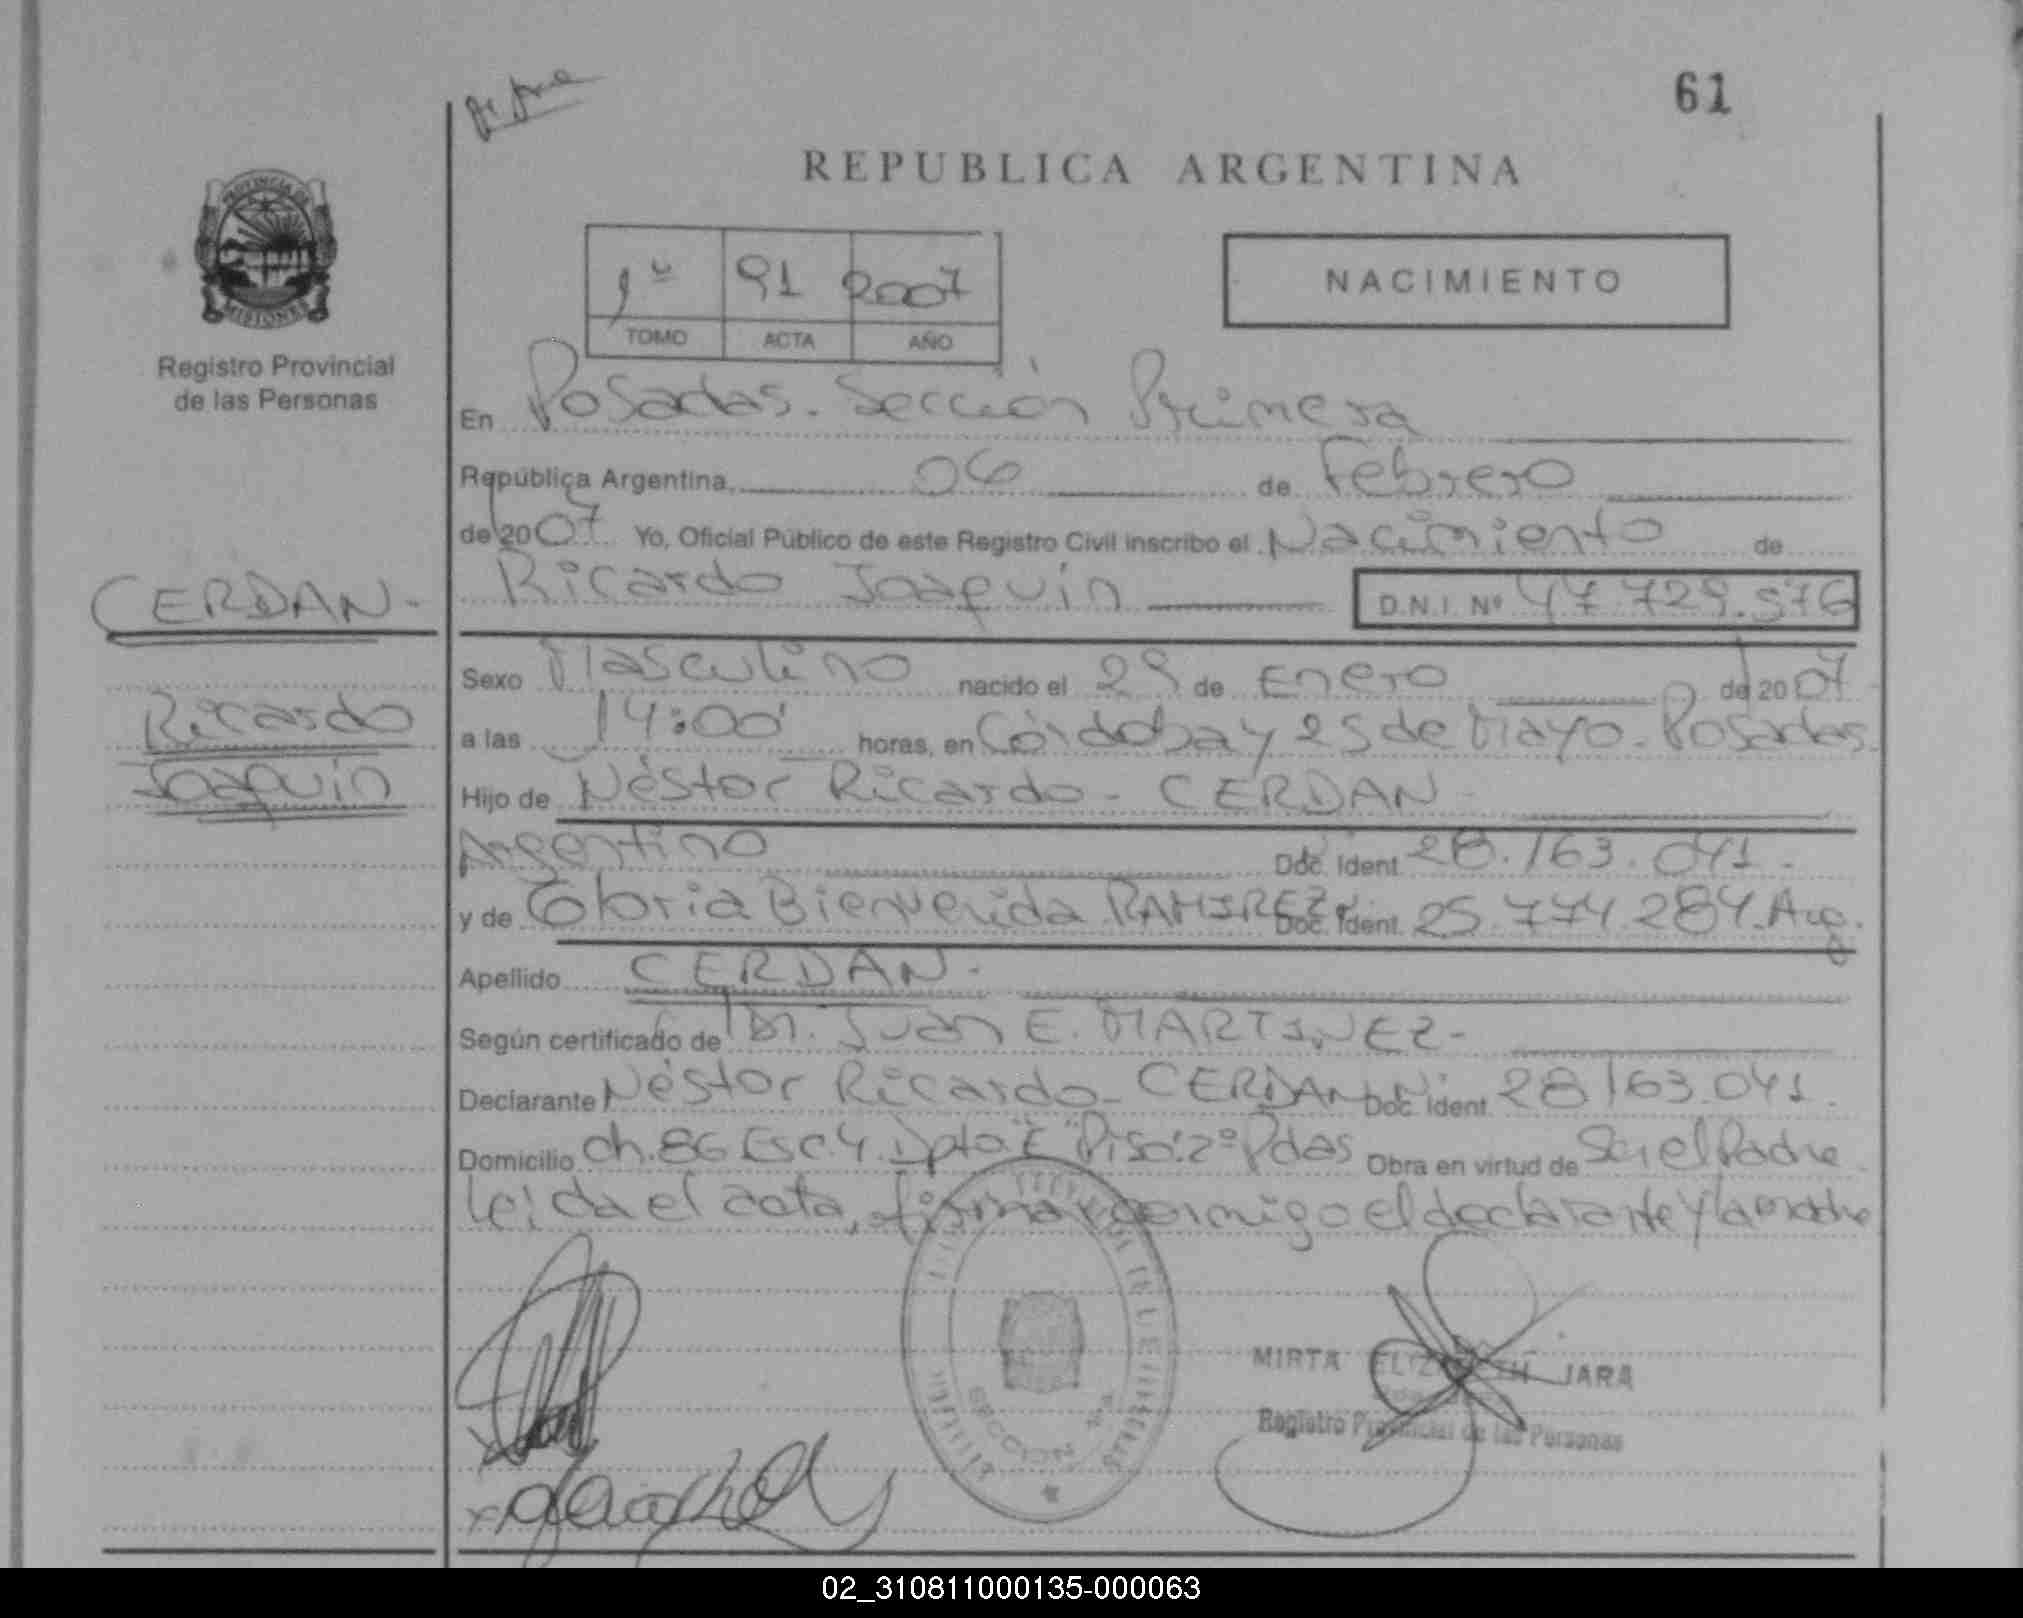 61
REPUBLICA ARGENTINA
PROVINCIA DE
MISIONES
Registro Provincial
de las Personas
1º 91 2007
TOMO ACTA AÑO
NACIMIENTO
En Posadas. Sección Primera
República Argentina, 06 de Febrero
de 2007 Yo, Oficial Público de este Registro Civil inscribo el Nacimiento de
Ricardo Joaquín D.N.I. Nº 47.729.576
CERDAN.
Ricardo
Joaquín
Sexo Masculino nacido el 29 de Enero de 2007
a las 14:00 horas, en Córdoba y 25 de Mayo. Posadas.
Hijo de Néstor Ricardo - CERDAN -
Argentino Doc. Ident. 28.163.041.
y de Gloria Bienvenida RAMIREZ Doc. Ident. 25.774.284. Arg.
Apellido CERDAN.
Según certificado de Dr. Juan E. MARTINEZ -
Declarante Néstor Ricardo - CERDAN Doc. Ident. 28.163.041.
Domicilio ch. 86 Esc. 4 Dpto. "E" Piso: 2º Pdas Obra en virtud de Ser el Padre.
Leída el acta, firman conmigo el declarante y la madre
SECCION
MIRTA ELIZABETH JARA
Registro Provincial de las Personas
02_310811000135-000063